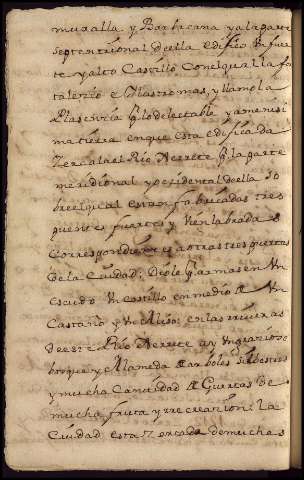 muralla y Barbacana y a la parte
septentrional de ella edifico Un fuer
te y alto Castillo con el qual la for
talecio e Ylustro mas, y llamola
Plasencia q̃ lo delectable y amenisi
ma tierra en que esta edificada
Zercala el Rio Xerete q̃ la parte
meridional y ozidental de ella so
bre el qual estan fabricadas tres
puentes fuertes y vien labradas
Correspondientes a otras tres puertas
de la Ciudad; Diole q̃ armas en Un
escudo Un castillo en medio de Un
Castaño y Un Aliso: en las riveras
de este Rio Xerete ay Un gracioso
bosque y Alameda de arboles silbestres
y mucha Cantidad de Guertas de
mucha fruta y recreazion: la
Ciudad esta Zercada de muchas